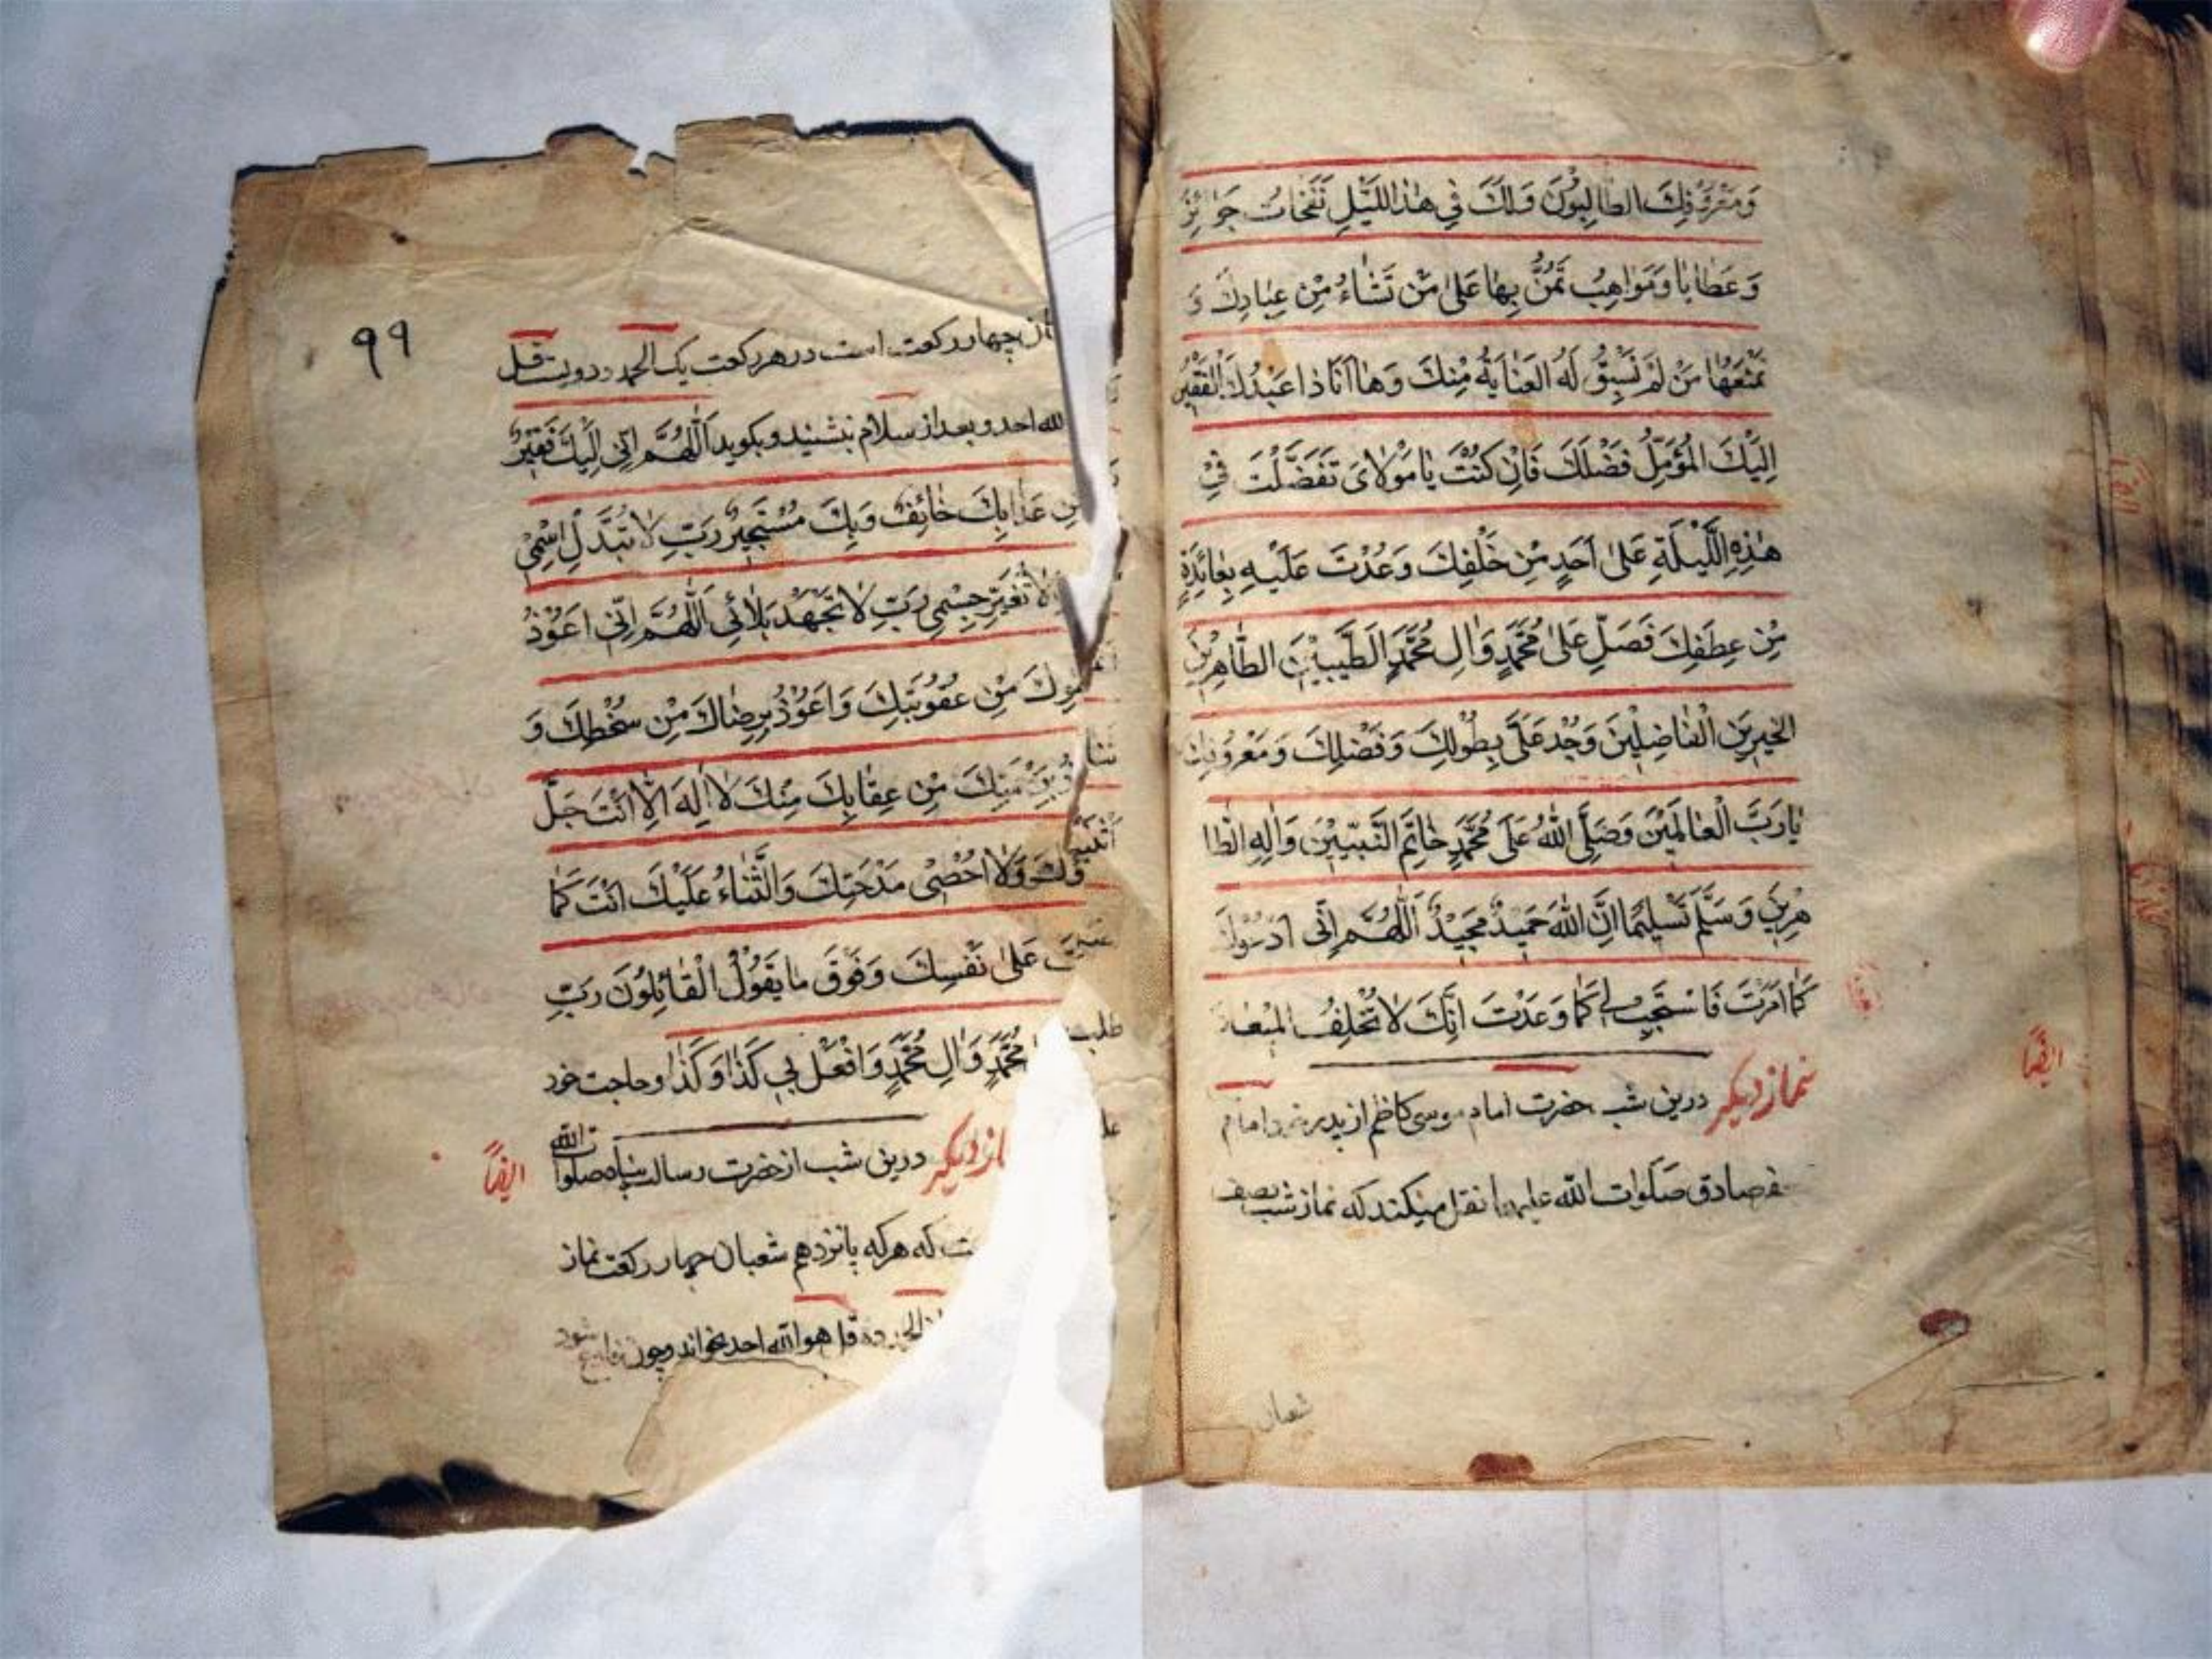 وَمَعْرُوفَكَ الطَّالِبُونَ وَلَكَ فِي هٰذَا اللَّيْلِ نَفَحَاتٌ جَوَائِزُ
وَعَطَايَا وَمَوَاهِبُ تَمُنُّ بِهَا عَلىٰ مَنْ تَشَاءُ مِنْ عِبَادِكَ وَ
تَمْنَعُهَا مَنْ لَمْ تَسْبِقْ لَهُ الْعِنَايَةُ مِنْكَ وَهَا اَنَا ذَا عَبْدُكَ الْفَقِيرُ
اِلَيْكَ الْمُؤَمِّلُ فَضْلَكَ فَاِنْ كُنْتَ يَا مَوْلَايَ تَفَضَّلْتَ فِي
هٰذِهِ اللَّيْلَةِ عَلىٰ اَحَدٍ مِنْ خَلْقِكَ وَعُدْتَ عَلَيْهِ بِعَائِدَةٍ
مِنْ عِطْفِكَ فَصَلِّ عَلىٰ مُحَمَّدٍ وَاٰلِ مُحَمَّدٍ الطَّيِّبِينَ الطَّاهِرِينَ
الْخَيِّرِينَ الْفَاضِلِينَ وَجُدْ عَلَيَّ بِطَوْلِكَ وَفَضْلِكَ وَمَعْرُوفِكَ
يَا رَبَّ الْعَالَمِينَ وَصَلَّى اللّٰهُ عَلىٰ مُحَمَّدٍ خَاتَمِ النَّبِيِّينَ وَاٰلِهِ الطَّا
هِرِينَ وَسَلَّمَ تَسْلِيمًا اِنَّ اللّٰهَ حَمِيدٌ مَجِيدٌ اَللّٰهُمَّ اِنِّي اَدْعُوكَ
كَمَا اَمَرْتَ فَاسْتَجِبْ لِي كَمَا وَعَدْتَ اِنَّكَ لَا تُخْلِفُ الْمِيعَادَ
نماز دیکر درین شب حضرت امام موسی کاظم از پدر خود امام
ایضًا
صادق صلوات الله علیهما نقل میکند که نماز شب نصف
شعبان
۹۹
آن چهار رکعت است در هر رکعت یک الحمد و دویست قل
الله احد و بعد از سلام بنشیند و بکوید اَللّٰهُمَّ اِنِّي اِلَيْكَ فَقِيرٌ
مِنْ عَذَابِكَ خَائِفٌ وَبِكَ مُسْتَجِيرٌ رَبِّ لَا تُبَدِّلْ اِسْمِي
لَا تُغَيِّرْ جِسْمِي رَبِّ لَا تَجْهَدْ بَلَائِي اَللّٰهُمَّ اِنِّي اَعُوذُ
مِنْ عُقُوبَتِكَ وَاَعُوذُ بِرِضَاكَ مِنْ سَخَطِكَ وَ
مِنْ عِقَابِكَ مِنْكَ لَا اِلٰهَ اِلَّا اَنْتَ جَلَّ
وَلَا اُحْصِي مَدْحَتَكَ وَالثَّنَاءُ عَلَيْكَ اَنْتَ كَمَا
عَلىٰ نَفْسِكَ وَفَوْقَ مَا يَقُولُ الْقَائِلُونَ رَبِّ
مُحَمَّدٍ وَاٰلِ مُحَمَّدٍ وَافْعَلْ بِي كَذَا وَكَذَا و حاجت خود
طلب
دیکر درین شب از حضرت رسالت پناه صلوات الله
ایضًا
که هرکه پانزدهم شعبان چهار رکعت نماز
قل هو الله احد بخواند و چون فارغ شود